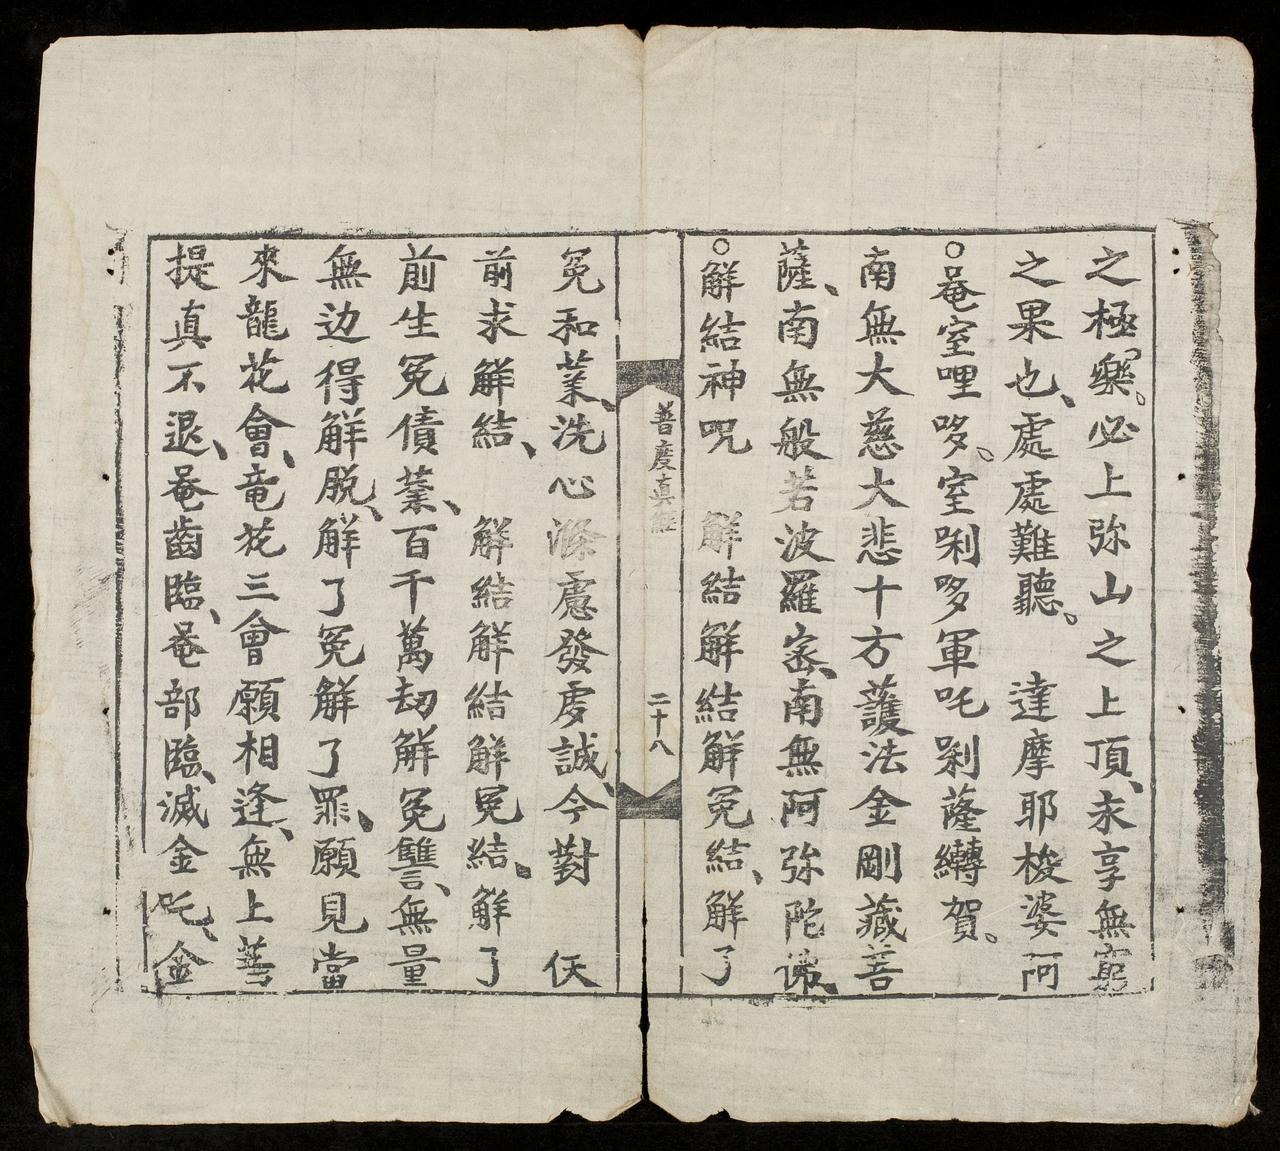 之極樂。必上弥山之上頂、永享無窮
之果也、處處難聽。　達摩耶梭婆阿
○菴室哩哆。室唎哆軍吒唎薩縛賀。
南無大慈大悲十方護法金剛藏菩
薩、南無般若波羅宻、南無阿弥陀佛
○觧結神呪　觧結觧結觧寃結、觧了
普度真經　二十八
寃和業、洗心滌慮發虔誠、今對　仸
前求觧結、　觧結觧結觧寃結。觧了
前生寃債業、百千萬劫觧寃讐、無量
無边得觧脱、觧了寃觧了罪、願見當
來龍花會、竜花三會願相逢、無上菩
提真不退、菴齒臨、菴部臨、滅金吒、金